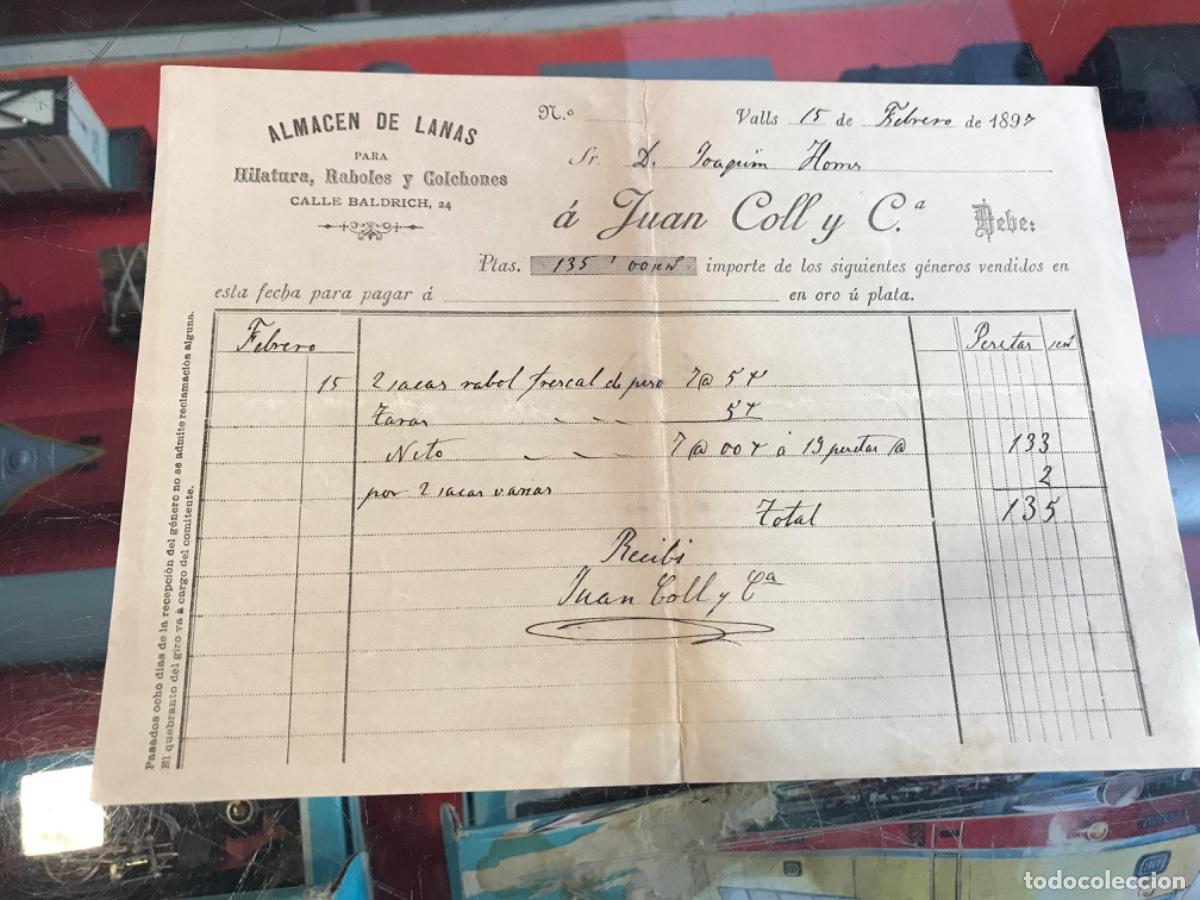 ALMACEN DE LANAS
PARA
Hilatura, Raboles y Colchones
CALLE BALDRICH, 24
N.º
Valls 15 de Febrero de 1897
Sr. D. Joaquim Homs
á Juan Coll y C.ª Debe:
Ptas. 135'00 importe de los siguientes géneros vendidos en
esta fecha para pagar á en oro ú plata.
Febrero Pesetas
15 2 sacas rabol frescal de peso 7 @ 5
Taras 5
Neto 7 @ 00 á 19 pesetas @ 133
por 2 sacas varias 2
Total 135
Recibi
Juan Coll y Cª
Pasados ocho dias de la recepcion del género no se admite reclamación alguna.
El quebranto del giro va á cargo del comitente.
todocoleccion